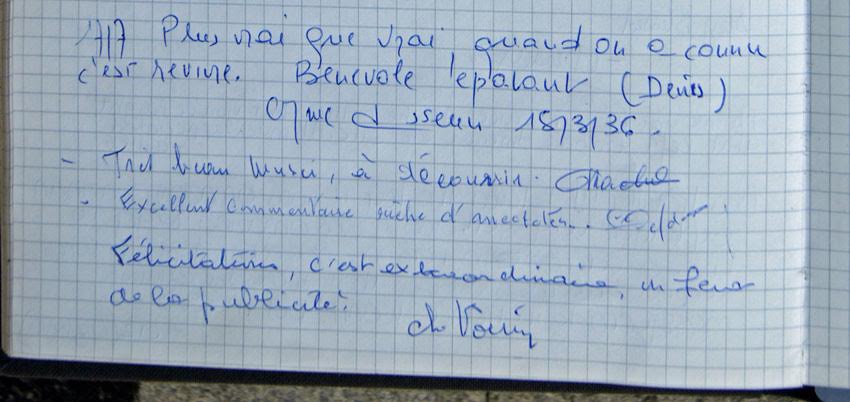 Plus vrai que vrai, quand on a connu
c'est revivre. Bénévole épatant (Denis)
18/3/36.
- Très beau Musée, à découvrir.
- Excellent commentaire riche d'anecdotes..
Félicitations, c'est extraordinaire, on fera
de la publicité!